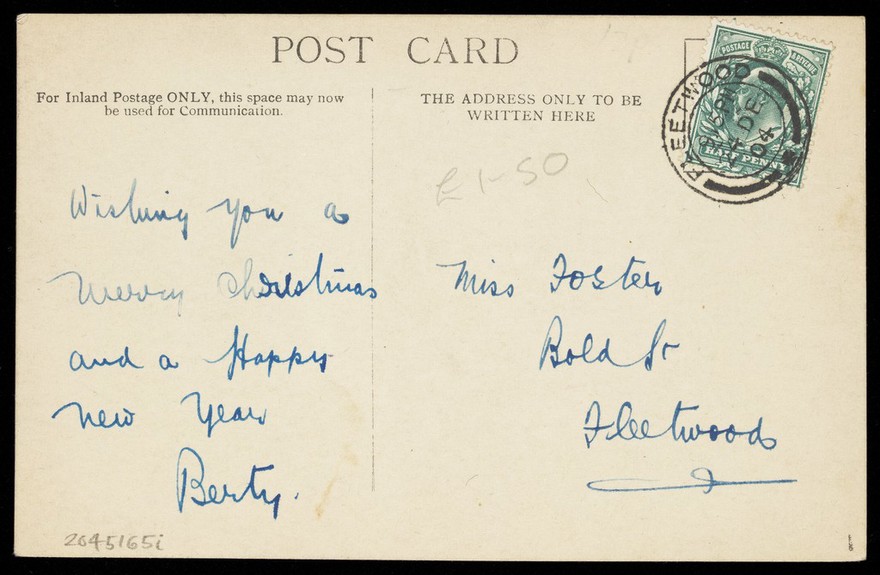 POST CARD
For Inland Postage ONLY, this space may now
be used for Communication.
THE ADDRESS ONLY TO BE
WRITTEN HERE
POSTAGE REVENUE
HALF PENNY
FLEETWOOD
DE
04
£1-50
Wishing you a
Merry Christmas
and a Happy
New Year
Berty.
Miss Foster
Bold St
Fleetwood
2645165i